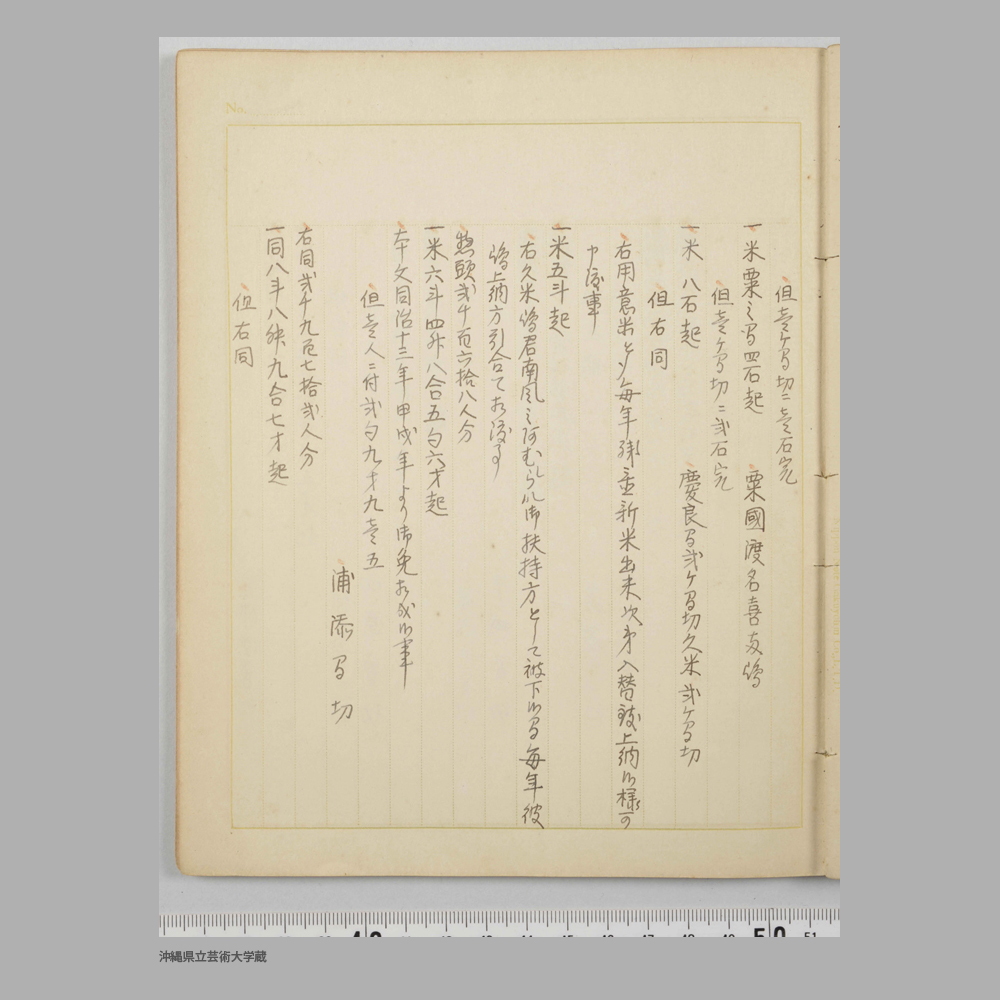 但壱ヶ間切ニ壱石完
一米粟之間四石起 粟國渡名喜両嶋
但壱ヶ間切ニ弐石完
一米 八石起 慶良間弐ヶ間切久米弐ヶ間切
但右同
右用意米として毎年 新米出来次第入替致上納候様可
申渡事
一米五斗起
右久米嶋君南風之阿むしられ御扶持方として被下候間毎年彼
嶋上納方引合て相渡事
惣頭弐千百六拾八人分
一米六斗四升八合五勺六才起
本文同治十三年甲戌年より御免相成候事
但壱人ニ付弐勺九才九壱五
浦添間切
右同弐千九百七拾弐人分
一同八斗八升九合七才起
但右同
No.
沖縄県立芸術大学蔵